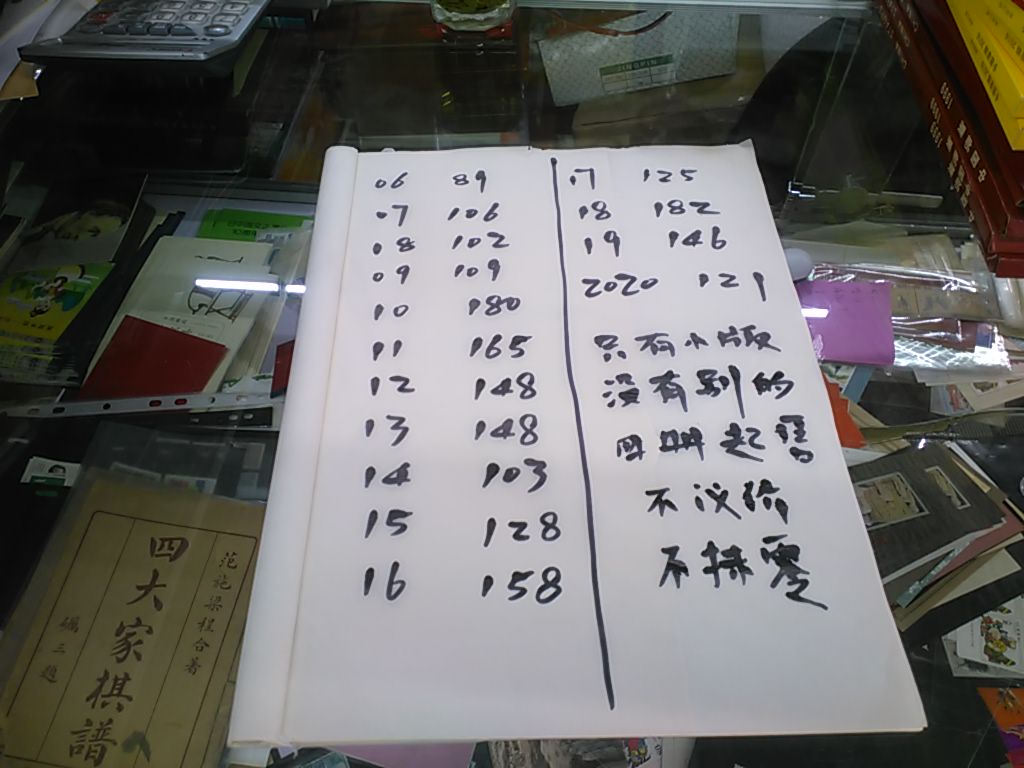 06 89
07 106
18 102
09 109
10 180
11 165
12 148
13 148
14 103
15 128
16 158
17 125
18 182
19 146
2020 121
只有小版
没有别的
四册起售
不议价
不抹零
范施梁程合著
四大家棋譜
三題
JINGPIN